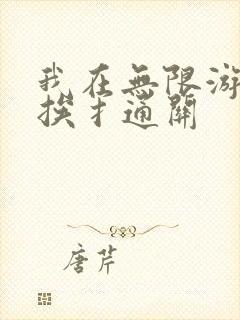 我在無限游
挨才通關
唐芹